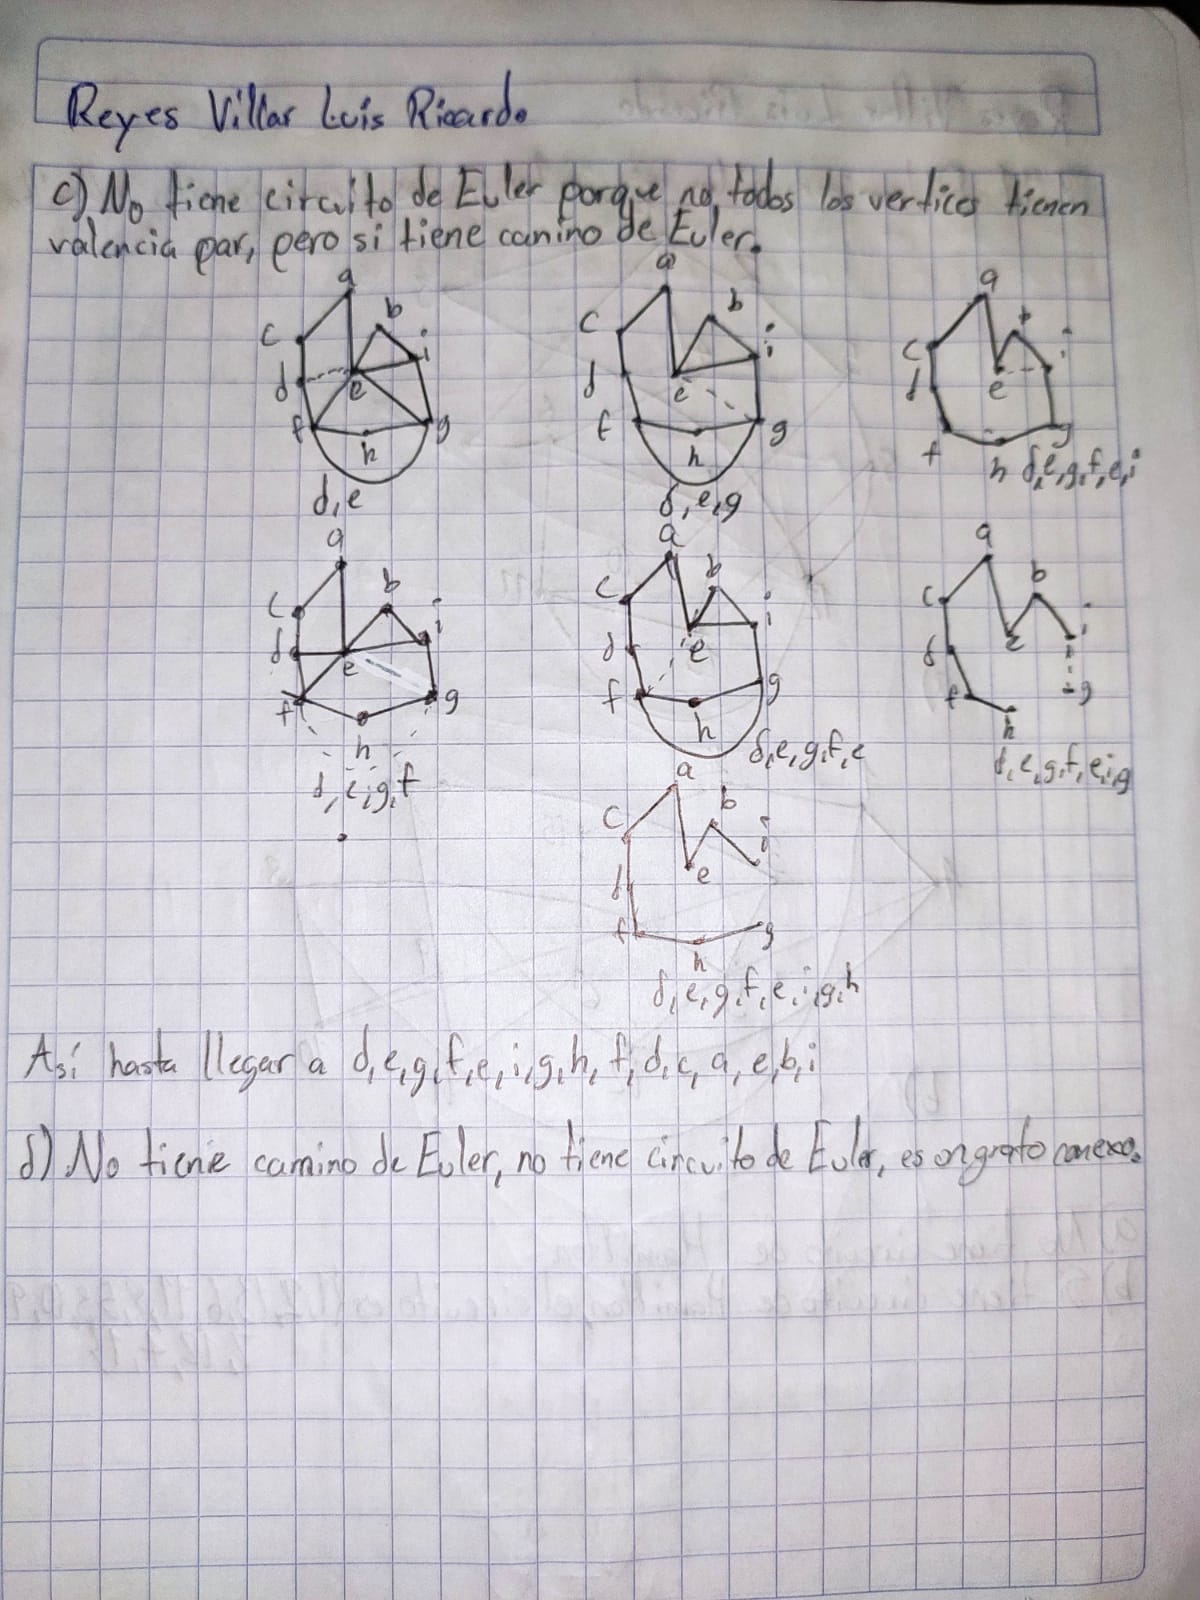 Reyes Villar Luis Ricardo
c) No tiene circuito de Euler porque no todos los vertices tienen
valencia par, pero si tiene camino de Euler.
a
c
b
i
d
e
f
h
g
d,e
a
c
b
i
d
e
f
h
g
d,e,g
a
c
b
i
d
e
f
g
h
d,e,g,f,e,i
a
c
b
i
d
e
f
g
h
d,e,g,f
a
c
b
i
d
e
f
g
h
d,e,g,f,e
a
c
b
i
e
d
f
g
h
d,e,g,f,e,i,g
a
c
b
i
e
d
f
g
h
d,e,g,f,e,i,g,h
Así hasta llegar a d,e,g,f,e,i,g,h,f,d,c,a,e,b,i
d) No tiene camino de Euler, no tiene circuito de Euler, es un grafo conexo.